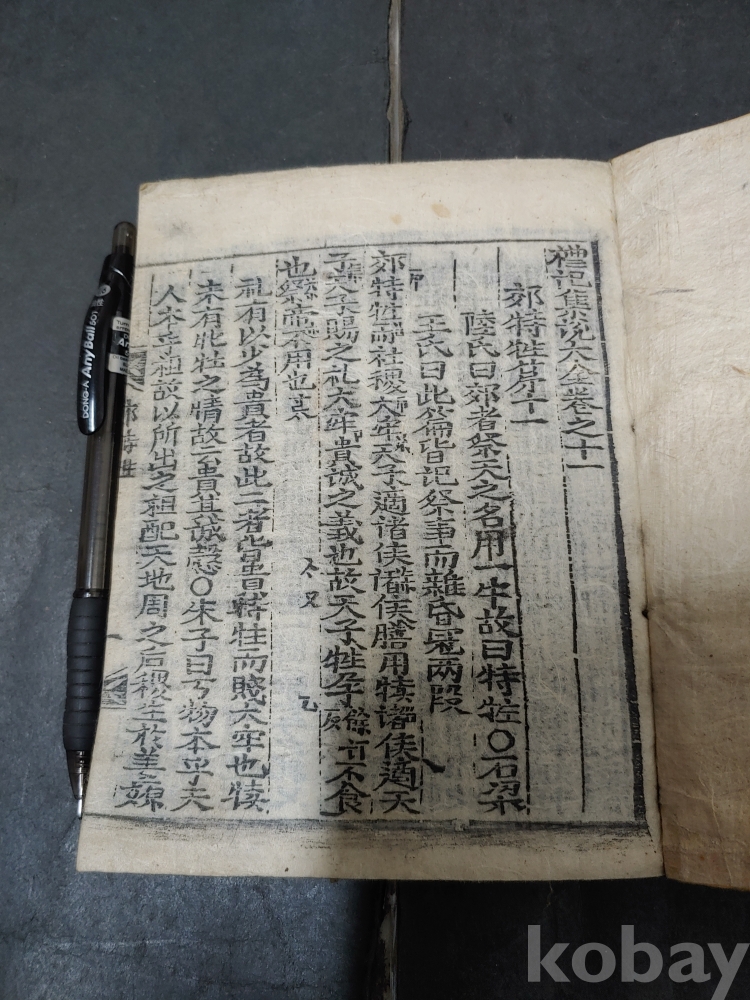 禮記集說大全卷之十一
郊特牲第十一
陸氏曰郊者祭天之名用一牛故曰特牲○石梁
王氏曰此篇皆記祭事而雜昏冠两段
郊特牲而社稷大牢天子適諸侯諸侯膳用犢諸侯適天
子天子賜之礼大牢貴誠之義也故天子牲孕不食
也祭帝不用也
礼有以少為貴者故此二者皆貴特牲而賤大牢也犢
未有牝牡之情故云貴其誠慤○朱子曰万物本乎天
人本乎祖故以所出之祖配天地周之后稷生於姜嫄
郊特牲
DONG-A AnyBall 501
kobay